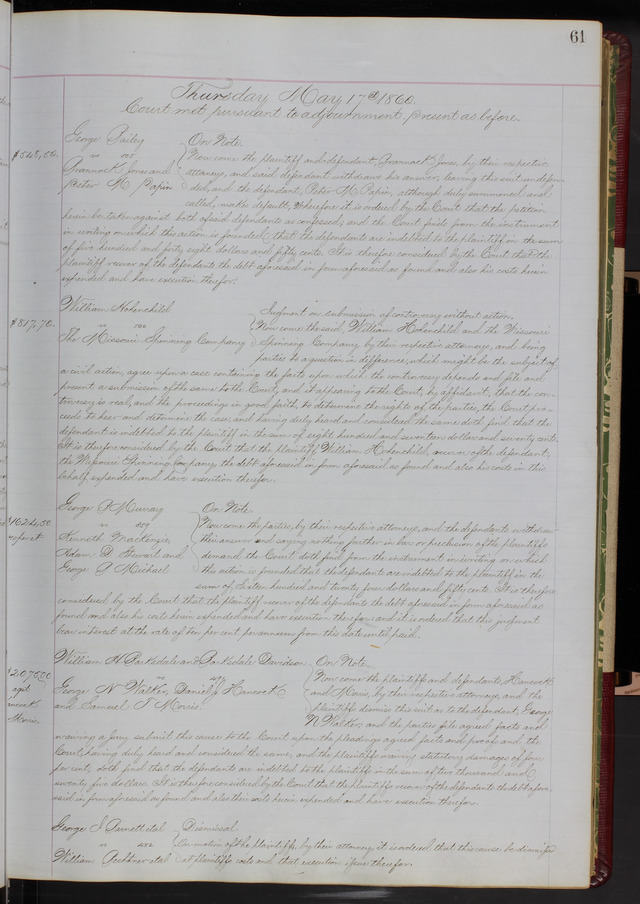 61
Thursday May 17th 1860.
Court met pursuant to adjournment, present as before.
George Bailey
vs
Brannock Jones and
Peter M Papin
$548,50.
On Note.
Now come the plaintiff and defendant, Brannock Jones, by their respective
attorneys, and said defendant withdraws his answer, leaving this suit undefen-
ded, and the defendant, Peter M Papin, although duly summoned and
called, makes default, Wherefore it is ordered by the Court that the petition
herein be taken against both of said defendants as confessed, and the Court finds from the instrument
in writing on which this action is founded, that the defendants are indebted to the plaintiff in the sum
of five hundred and forty eight dollars and fifty cents. It is therefore considered by the Court that the
plaintiff recover of the defendants the debt aforesaid in form aforesaid as found and also his costs herein
expended and have execution therefor.
William Hokenchild
vs
The Missouri Spinning Company
$817.70.
Judgment on submission of controversy without action.
Now come the said William Hokenchild and the Missouri
Spinning Company by their respective attorneys, and being
parties to a question in difference, which might be the subject of
a civil action, agree upon a case containing the facts upon which the controversy depends and file and
present a submission of the same to the Court, and it appearing to the Court, by affidavit, that the con-
troversy is real, and the proceedings in good faith, to determine the rights of the parties, the Court pro-
ceeds to hear and determine the case, and having duly heard and considered the same doth find that the
defendant is indebted to the plaintiff in the sum of eight hundred and seventeen dollars and seventy cents.
It is therefore considered by the Court that the plaintiff William Hokenchild, recover of the defendant,
the Missouri Spinning Company, the debt aforesaid in form aforesaid as found and also his costs in this
behalf expended and have execution therefor.
George A Murray
vs
Kenneth MacKenzie,
Adam D Steuart and
George A Michael
$1624.50
On Note.
Now come the parties, by their respective attorneys, and the defendants withdraw
their answer and saying nothing further in bar or preclusion of the plaintiffs
demand the Court doth find from the instrument in writing on which
the action is founded that the defendants are indebted to the plaintiff in the
sum of Sixteen hundred and twenty four dollars and fifty cents. It is therefore
considered by the Court that the plaintiff recover of the defendants the debt aforesaid in form aforesaid as
found and also his costs herein expended and have execution therefor, and it is ordered that this judgment
bear interest at the rate of ten per cent per annum from this date until paid.
William H Barksdale and Barksdale Davidson
vs
George N Walker, Daniel Hancock
and Samuel T Morris
$2075.00
agst
Morris
On Note.
Now come the plaintiffs and defendants, Hancock
and Morris, by their respective attorneys, and the
plaintiffs dismiss this suit as to the defendant, George
N Walker, and the parties file agreed facts and
waiving a jury submit this cause to the Court upon the pleadings agreed facts and proofs and the
Court, having duly heard and considered the same, and the plaintiffs waiving statutory damages of four
per cent, doth find that the defendants are indebted to the plaintiffs in the sum of two thousand and
seventy five dollars. It is therefore considered by the Court that the plaintiffs recover of the defendants the debt afore-
said in form aforesaid as found and also their costs herein expended and have execution therefor.
George J Barnett et al
vs
William et al
Dismissal
On motion of the plaintiffs, by their attorney it is ordered that this cause be dismissed
at plaintiffs costs and that execution issue therefor.